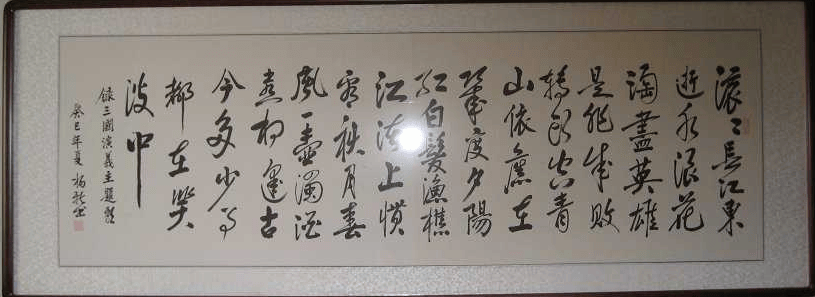 滚〻長江東
逝水浪花
淘盡英雄
是非成敗
轉頭空青
山依舊在
幾度夕陽
红白髮漁樵
江渚上惯
看秋月春
風一壶濁酒
喜相逢古
今多少事
都在笑
谈中
錄三國演義主題
癸巳年夏 杨